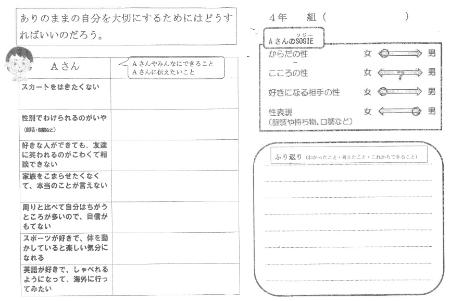 ありのままの自分を大切にするためにはどうす
ればいいのだろう。
Aさん
Aさんやみんなにできること
Aさんに伝えたいこと
スカートをはきたくない
性別でわけられるのがいや
好きな人ができても、友達
に笑われるのがこわくて相
談できない
家族をこまらせたくなく
て、本当のことが言えない
周りと比べて自分はちがう
ところが多いので、自信が
もてない
スポーツが好きで、体を動
かしていると楽しい気分に
なれる
英語が好きで、しゃべれる
ようになって、海外に行っ
てみたい
4年 組( )
AさんのSOGIE
からだの性 女 男
こころの性 女 ? 男
好きになる相手の性 女 男
性表現 女 男
(服装や持ち物、口調など)
ふり返り(わかったこと・考えたこと・これからできること)